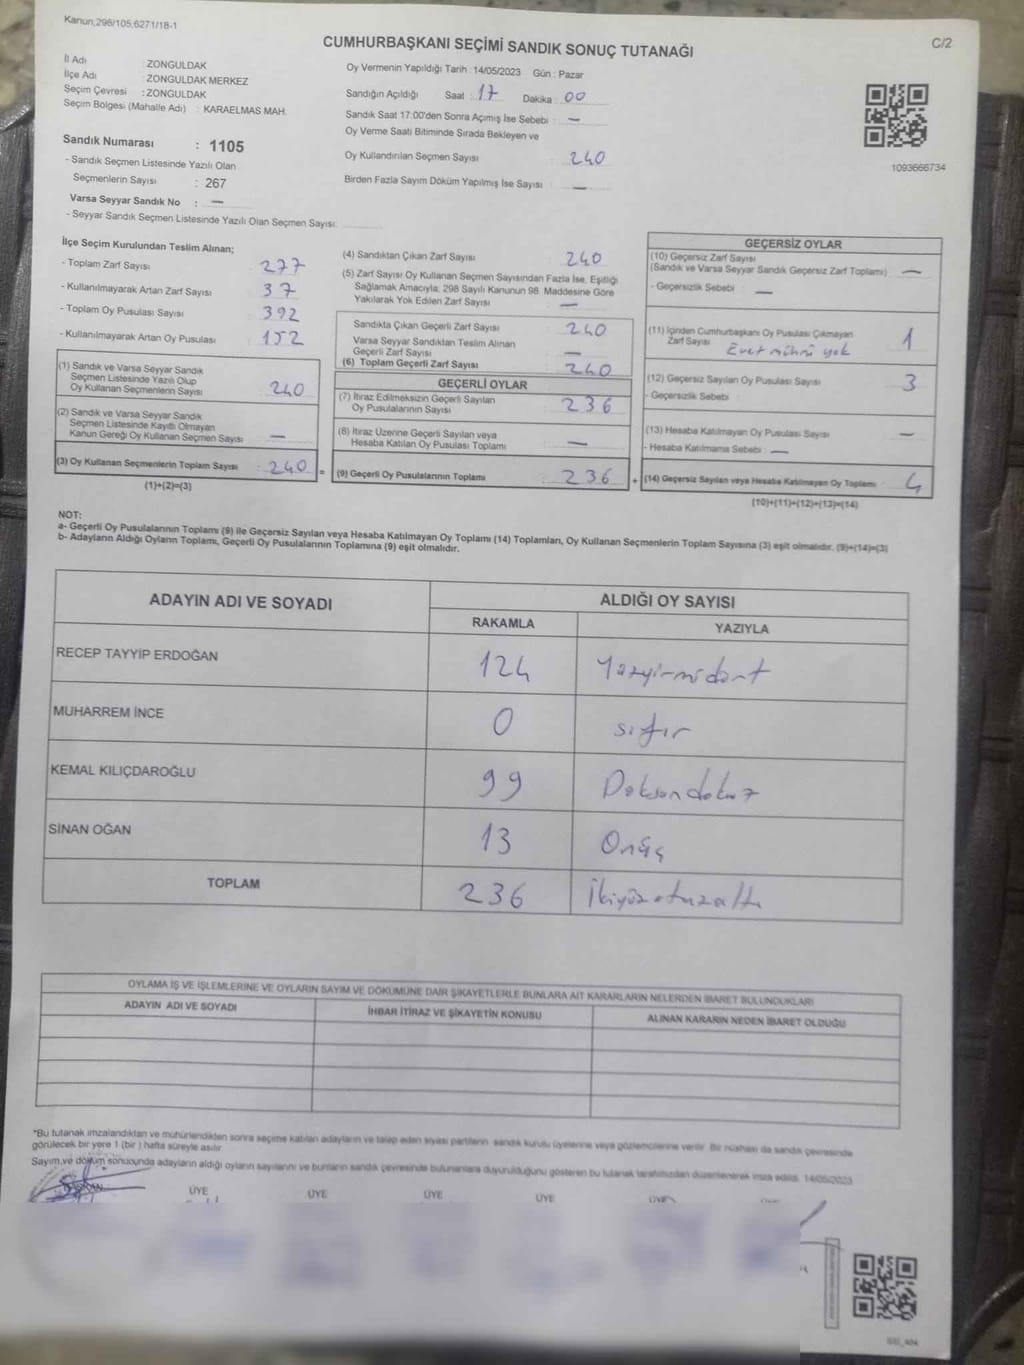 Kanun:298/105,6271/18-1
C/2
CUMHURBAŞKANI SEÇİMİ SANDIK SONUÇ TUTANAĞI
İl Adı : ZONGULDAK
İlçe Adı : ZONGULDAK MERKEZ
Seçim Çevresi : ZONGULDAK
Seçim Bölgesi (Mahalle Adı) : KARAELMAS MAH.
Sandık Numarası : 1105
- Sandık Seçmen Listesinde Yazılı Olan
Seçmenlerin Sayısı : 267
Varsa Seyyar Sandık No : —
- Seyyar Sandık Seçmen Listesinde Yazılı Olan Seçmen Sayısı:
Oy Vermenin Yapıldığı Tarih : 14/05/2023 Gün : Pazar
Sandığın Açıldığı Saat : 17 Dakika : 00
Sandık Saat 17:00'den Sonra Açımış İse Sebebi : —
Oy Verme Saati Bitiminde Sırada Bekleyen ve
Oy Kullandırılan Seçmen Sayısı : 240
Birden Fazla Sayım Döküm Yapılmış İse Sayısı : —
1093666734
İlçe Seçim Kurulundan Teslim Alınan;
- Toplam Zarf Sayısı 277
- Kullanılmayarak Artan Zarf Sayısı 37
- Toplam Oy Pusulası Sayısı 392
- Kullanılmayarak Artan Oy Pusulası 152
(1) Sandık ve Varsa Seyyar Sandık
Seçmen Listesinde Yazılı Olup
Oy Kullanan Seçmenlerin Sayısı 240
(2) Sandık ve Varsa Seyyar Sandık
Seçmen Listesinde Kayıtlı Olmayan
Kanun Gereği Oy Kullanan Seçmen Sayısı —
(3) Oy Kullanan Seçmenlerin Toplam Sayısı : 240 =
(1)+(2)=(3)
(4) Sandıktan Çıkan Zarf Sayısı 240
(5) Zarf Sayısı Oy Kullanan Seçmen Sayısından Fazla İse, Eşitliği
Sağlamak Amacıyla, 298 Sayılı Kanunun 98. Maddesine Göre
Yakılarak Yok Edilen Zarf Sayısı —
Sandıkta Çıkan Geçerli Zarf Sayısı 240
Varsa Seyyar Sandıktan Teslim Alınan
Geçerli Zarf Sayısı —
(6) Toplam Geçerli Zarf Sayısı 240
GEÇERLİ OYLAR
(7) İtiraz Edilmeksizin Geçerli Sayılan
Oy Pusulalarının Sayısı 236
(8) İtiraz Üzerine Geçerli Sayılan veya
Hesaba Katılan Oy Pusulası Toplamı —
(9) Geçerli Oy Pusulalarının Toplamı 236 +
GEÇERSİZ OYLAR
(10) Geçersiz Zarf Sayısı
(Sandık ve Varsa Seyyar Sandık Geçersiz Zarf Toplamı) —
- Geçersizlik Sebebi : —
(11) İçinden Cumhurbaşkanı Oy Pusulası Çıkmayan
Zarf Sayısı 1
Evet mührü yok
(12) Geçersiz Sayılan Oy Pusulası Sayısı 3
- Geçersizlik Sebebi
(13) Hesaba Katılmayan Oy Pusulası Sayısı —
- Hesaba Katılmama Sebebi : —
(14) Geçersiz Sayılan veya Hesaba Katılmayan Oy Toplamı 4
(10)+(11)+(12)+(13)=(14)
NOT:
a- Geçerli Oy Pusulalarının Toplamı (9) ile Geçersiz Sayılan veya Hesaba Katılmayan Oy Toplamı (14) Toplamları, Oy Kullanan Seçmenlerin Toplam Sayısına (3) eşit olmalıdır. (9)+(14)=(3)
b- Adayların Aldığı Oyların Toplamı, Geçerli Oy Pusulalarının Toplamına (9) eşit olmalıdır.
ADAYIN ADI VE SOYADI ALDIĞI OY SAYISI
RAKAMLA YAZIYLA
RECEP TAYYİP ERDOĞAN 124 Yüzyirmidört
MUHARREM İNCE 0 sıfır
KEMAL KILIÇDAROĞLU 99 Doksandokuz
SİNAN OĞAN 13 Onüç
TOPLAM 236 İkiyüzotuzaltı
OYLAMA İŞ VE İŞLEMLERİNE VE OYLARIN SAYIM VE DÖKÜMÜNE DAİR ŞİKAYETLERLE BUNLARA AİT KARARLARIN NELERDEN İBARET BULUNDUKLARI
ADAYIN ADI VE SOYADI İHBAR İTİRAZ VE ŞİKAYETİN KONUSU ALINAN KARARIN NEDEN İBARET OLDUĞU
*Bu tutanak imzalandıktan ve mühürlendikten sonra seçime katılan adayların ve talep eden siyasi partilerin sandık kurulu üyelerine veya gözlemcilerine verilir. Bir nüshası da sandık çevresinde
görülecek bir yere 1 (bir) hafta süreyle asılır.
Sayım ve döküm sonucunda adayların aldığı oyların sayılarını ve bunların sandık çevresinde bulunanlara duyurulduğunu gösteren bu tutanak tarafımızdan düzenlenerek imza edildi. 14/05/2023
BAŞKAN ÜYE ÜYE ÜYE ÜYE ÜYE